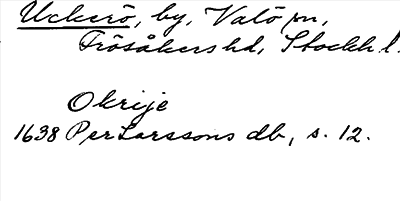 Uckerö, by, Valö sn,
Frösåkers hd, Stockh. l.
Okrije
1638 Per Larssons db, s. 12.